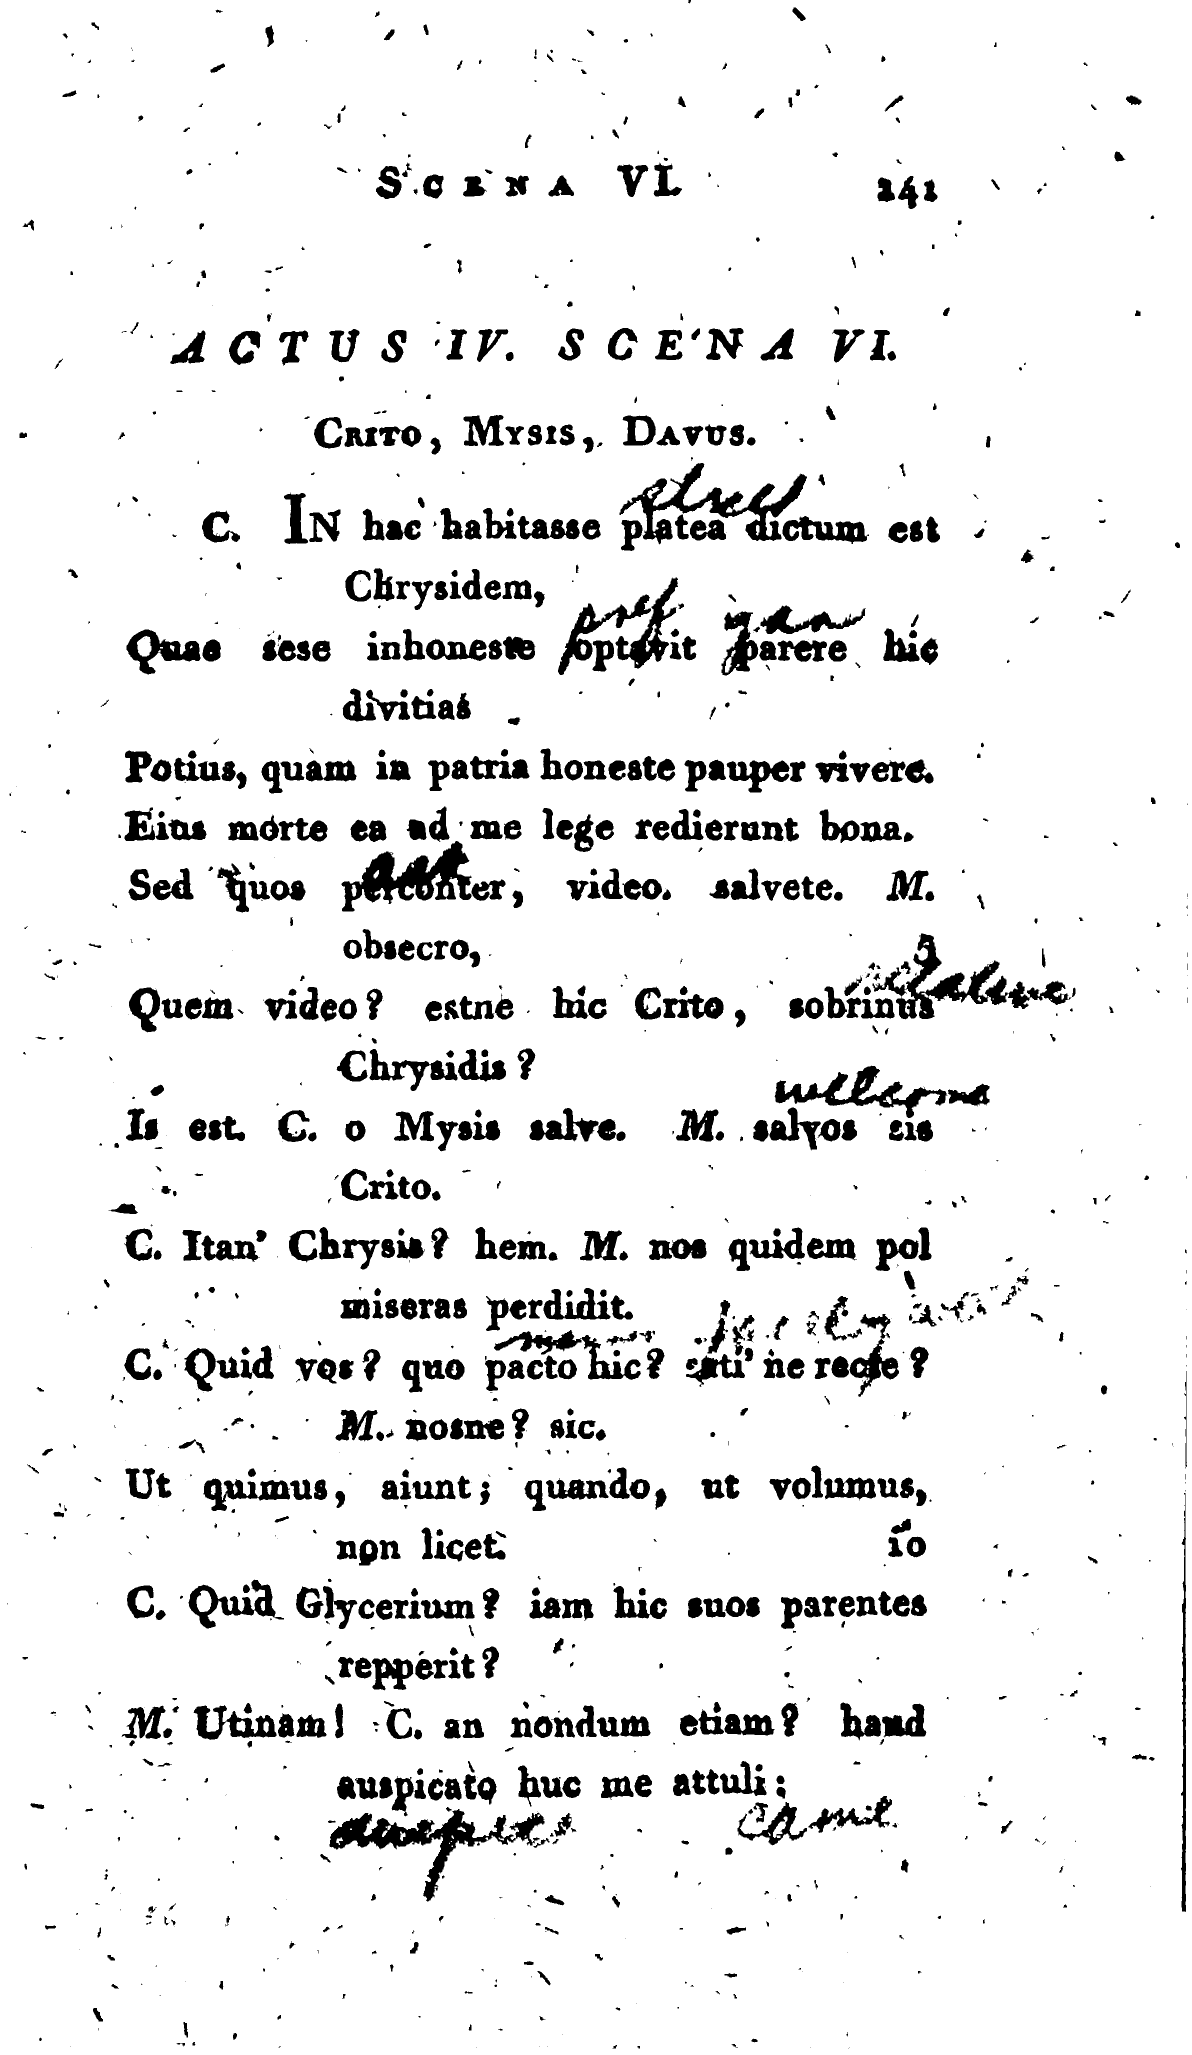 SCENA VI. 241
ACTUS IV. SCENA VI.
CRITO, MYSIS, DAVUS.
street
C. IN hac habitasse platea dictum est
Chrysidem,
pref gan
Quae sese inhoneste optavit parere hic
divitias
Potius, quam in patria honeste pauper vivere.
Eius morte ea ad me lege redierunt bona.
ask
Sed quos perconter, video. salvete. M.
obsecro, 5
Quem video? estne hic Crito, sobrinus
Chrysidis?
wellcome
Is est. C. o Mysis salve. M. salvos sis
Crito.
C. Itan' Chrysis? hem. M. nos quidem pol
miseras perdidit.
C. Quid vos? quo pacto hic? sati' ne recte?
M. nosne? sic.
Ut quimus, aiunt; quando, ut volumus,
non licet. 10
C. Quid Glycerium? iam hic suos parentes
repperit?
M. Utinam! C. an nondum etiam? haud
auspicato huc me attuli:
came